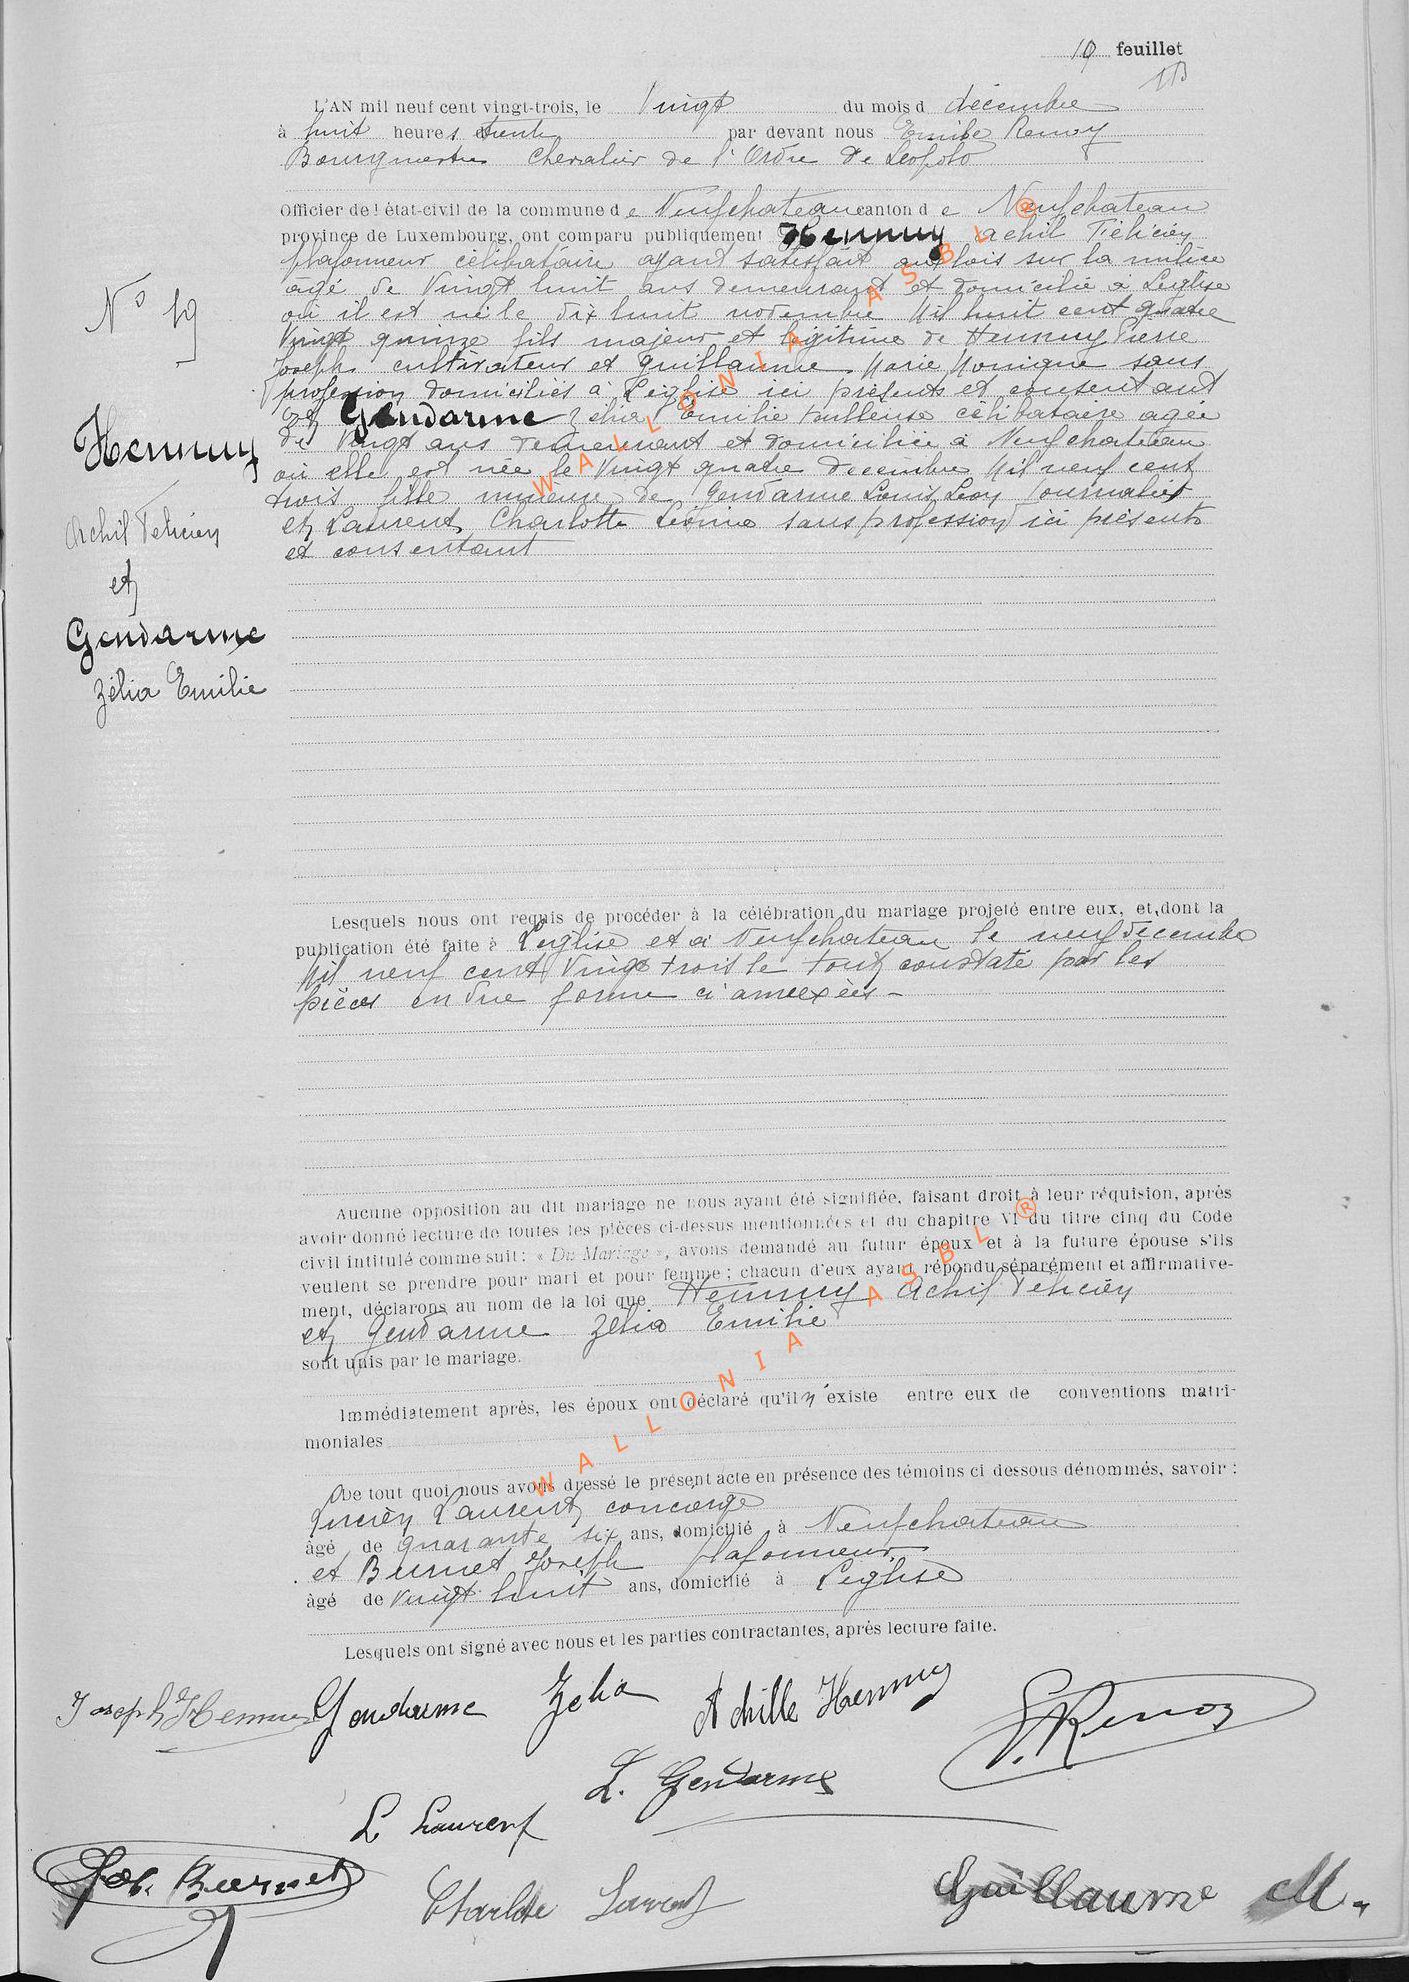 19 feuillet
113
L'AN mil neuf cent vingt-trois, le Vingt du mois d décembre
à huit heures trente par devant nous Emile Remoy
Bourgmestre Chevalier de l'Ordre de Léopold
Officier de l'état-civil de la commune de Neufchateau canton de Neufchateau
province de Luxembourg, ont comparu publiquement Hennuy Achil Félicien
plafonneur célibataire ayant satisfait aux lois sur la milice
agé de Vingt huit ans demeurant et domicilié à Léglise
où il est né le dix huit novembre Mil huit cent quatre
Vingt quinze fils majeur et légitime de Hennuy Pierre
Joseph cultivateur et Guillaume Marie Monique sans
profession domiciliés à Léglise ici présents et consentant
Et Gendarme Zélia Emilie tailleuse célibataire agée
de Vingt ans demeurant et domiciliée à Neufchateau
où elle est née le Vingt quatre decembre Mil neuf cent
trois fille mineure de Gendarme Louis Leon Journalier
et Laurent Charlotte Léonie sans profession ici présents
et consentant
N° 19
Hennuy
Achil Felicien
et
Gendarme
Zélia Emilie
Lesquels nous ont requis de procéder à la célébration du mariage projeté entre eux, et dont la
publication été faite à Léglise et à Neufchateau le neuf décembre
Mil neuf cent Vingt trois le tout constaté par les
pièces en due forme ci annexées -
Aucune opposition au dit mariage ne nous ayant été signifiée, faisant droit à leur réquision, après
avoir donné lecture de toutes les pièces ci-dessus mentionnées et du chapitre VI du titre cinq du Code
civil intitulé comme suit : « Du Mariage », avons demandé au futur époux et à la future épouse s'ils
veulent se prendre pour mari et pour femme ; chacun d'eux ayant répondu séparément et affirmative-
ment, déclarons au nom de la loi que Hennuy Achil Felicien
et Gendarme Zélia Emilie
sont unis par le mariage.
Immédiatement après, les époux ont déclaré qu'il n'existe entre eux de conventions matri-
moniales
De tout quoi nous avons dressé le présent acte en présence des témoins ci dessous dénommés, savoir :
Lucien Laurent concierge
âgé de quarante six ans, domicilié à Neufchateau
et Burnet Joseph plafonneur
âgé de vingt huit ans, domicilié à Léglise
Lesquels ont signé avec nous et les parties contractantes, après lecture faite.
Joseph Hennuy Gendarme Zelia Achille Hennuy
L. Gendarme
L Laurent
Jos. Burnet Charlotte Laurent Guillaume M.
WALLONIA ASBL ®
WALLONIA ASBL ®